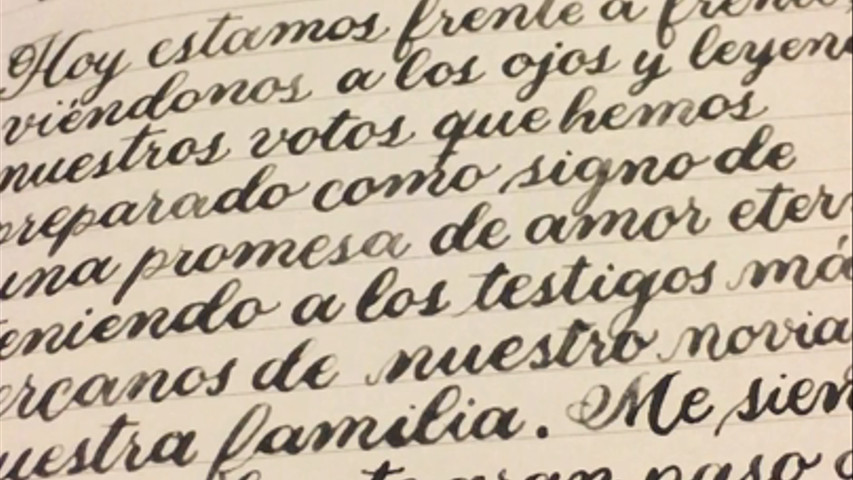 Hoy estamos frente a frente
viéndonos a los ojos y leyen
nuestros votos que hemos
preparado como signo de
una promesa de amor eter
eniendo a los testigos má
ercanos de nuestro novia
uestra familia. Me sien
gran paso